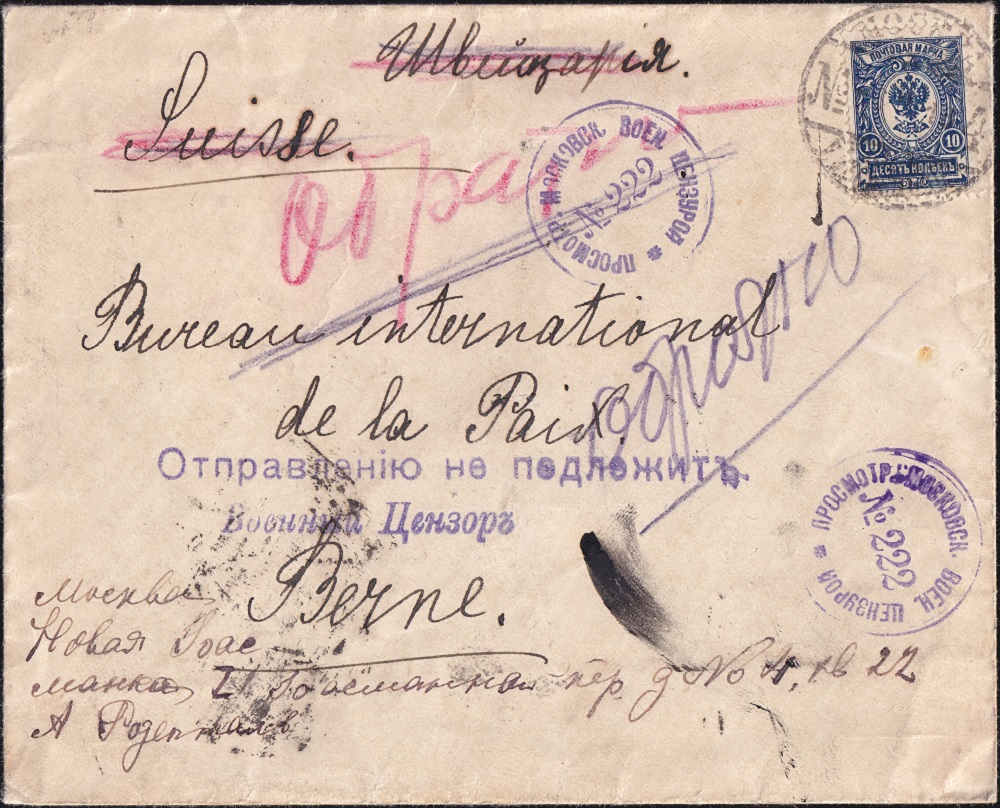 Швейцарія.
Suisse.
обратно
ПОЧТОВАЯ МАРКА
10 10
ДЕСЯТЬ КОПѢЕКЪ
ПРОСМОТР. МОСКОВСК. ВОЕН. ЦЕНЗУРОЙ
№ 222
Bureau international
de la Paix.
обратно
Отправленію не подлежитъ.
Военный Цензоръ
ПРОСМОТР. МОСКОВСК. ВОЕН. ЦЕНЗУРОЙ
№ 222
Berne.
Москва
Новая Бас
манная I Басманный пер. д № 4, кв 22
А